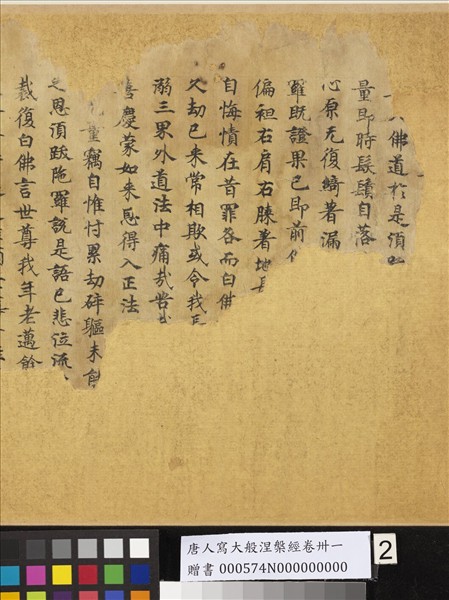 佛道於是須
量即時髮鬚自落
心原无復縛著漏
羅既證果已即前
偏袒右肩右膝著地長
自悔責在昔罪咎而白佛
久劫已來常相欺或令我長
溺三界外道法中痛哉苦哉
喜慶蒙如來恩得入正法
量竊自惟忖累劫碎軀未能
之恩須跋陁羅說是語已悲泣流
裁復白佛言世尊我年老邁餘
唐人寫大般涅槃經卷卅一
贈書 000574N000000000
2